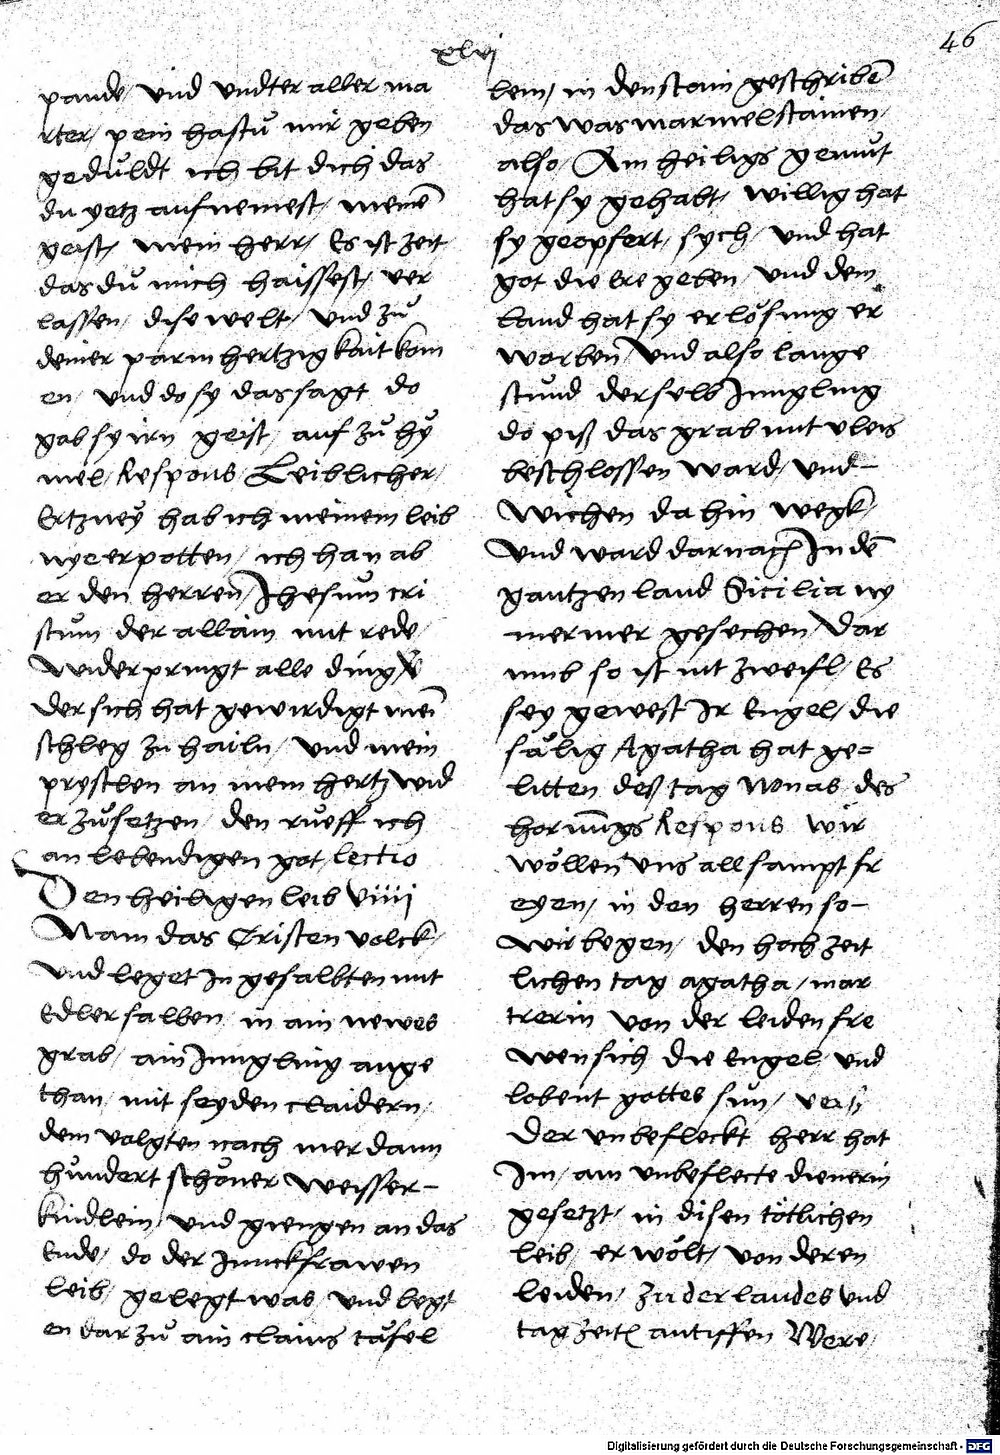 xlvi
46
pande / und undter aller ma
rter / pein hastu mir geben
geduldt ich bit dich das
du yetz aufnemest / meinē
geist / mein herr / Es ist zeit
das du mich haissest / ver
lassen / dise welt / und zů
deiner parmhertzigkait kom
en / und do sy das sagt do
gab sy irn geist / auf zů hy
mel / Respons / Leiblicher /
Ertzney hab ich meinem leib
nye erpotten / ich han ab
er den herren / Jhesum cri
stum der allain mit rede /
widerpringt alle ding
der sich hat gewirdigt mein
schleg zu hailn / und mein
prystlen an mein hertz wid
er zůsetzen / den rueff ich
an lebendigen got / lectio
Den heiligen leib viiii
Nam das Cristen volck /
und leget in gesalbten mit
Edler salben / in ain newes
grab / ain Jungling ange
than / mit seyden claidern /
dem volgten nach mer dann
hundert schöner weisser-
kindlein / und giengen an das
Ende / do der Junckfrawen
leib / gelegt was / und legt
en dar zů ain clains täfel
lein / in den stain geschribē
das was marmelstainen /
also / Ain heiligs gemut
hat sy gehabt / willig hat
sy geopfert / sych / und hat
got die ere geben / und dem
land hat sy erlösung er
worben / und also lange
stund derselb Jungling
do piß das grab mit vleis
beschlossen ward / und-
wichen da hin wegk /
und ward darnach / In dē
gantzen land Sicilia ny
mermer gesechen / Dar
umb so ist nit zweifl / Es
sey gewest Ir Engel / die
sälig Agatha hat ge=
litten deß tag Nonas des
hornūngs Respons wir
wöllen uns all sampt fr
eyen / in den herren so-
wir begen / den hochzeit
lichen tag agatha / mar
trerin von der leiden fre
wen sich die Engel und
lobent gottes sun / vers
Der unbefleckt herr hat
Im / ain unbeflecte dienerin
gesetzt / in disen tötlichen
leib / erwölt / von deren
leiden / Zu der laudes und
tagzeitē antiffen Were /
Digitalisierung gefördert durch die Deutsche Forschungsgemeinschaft - DFG